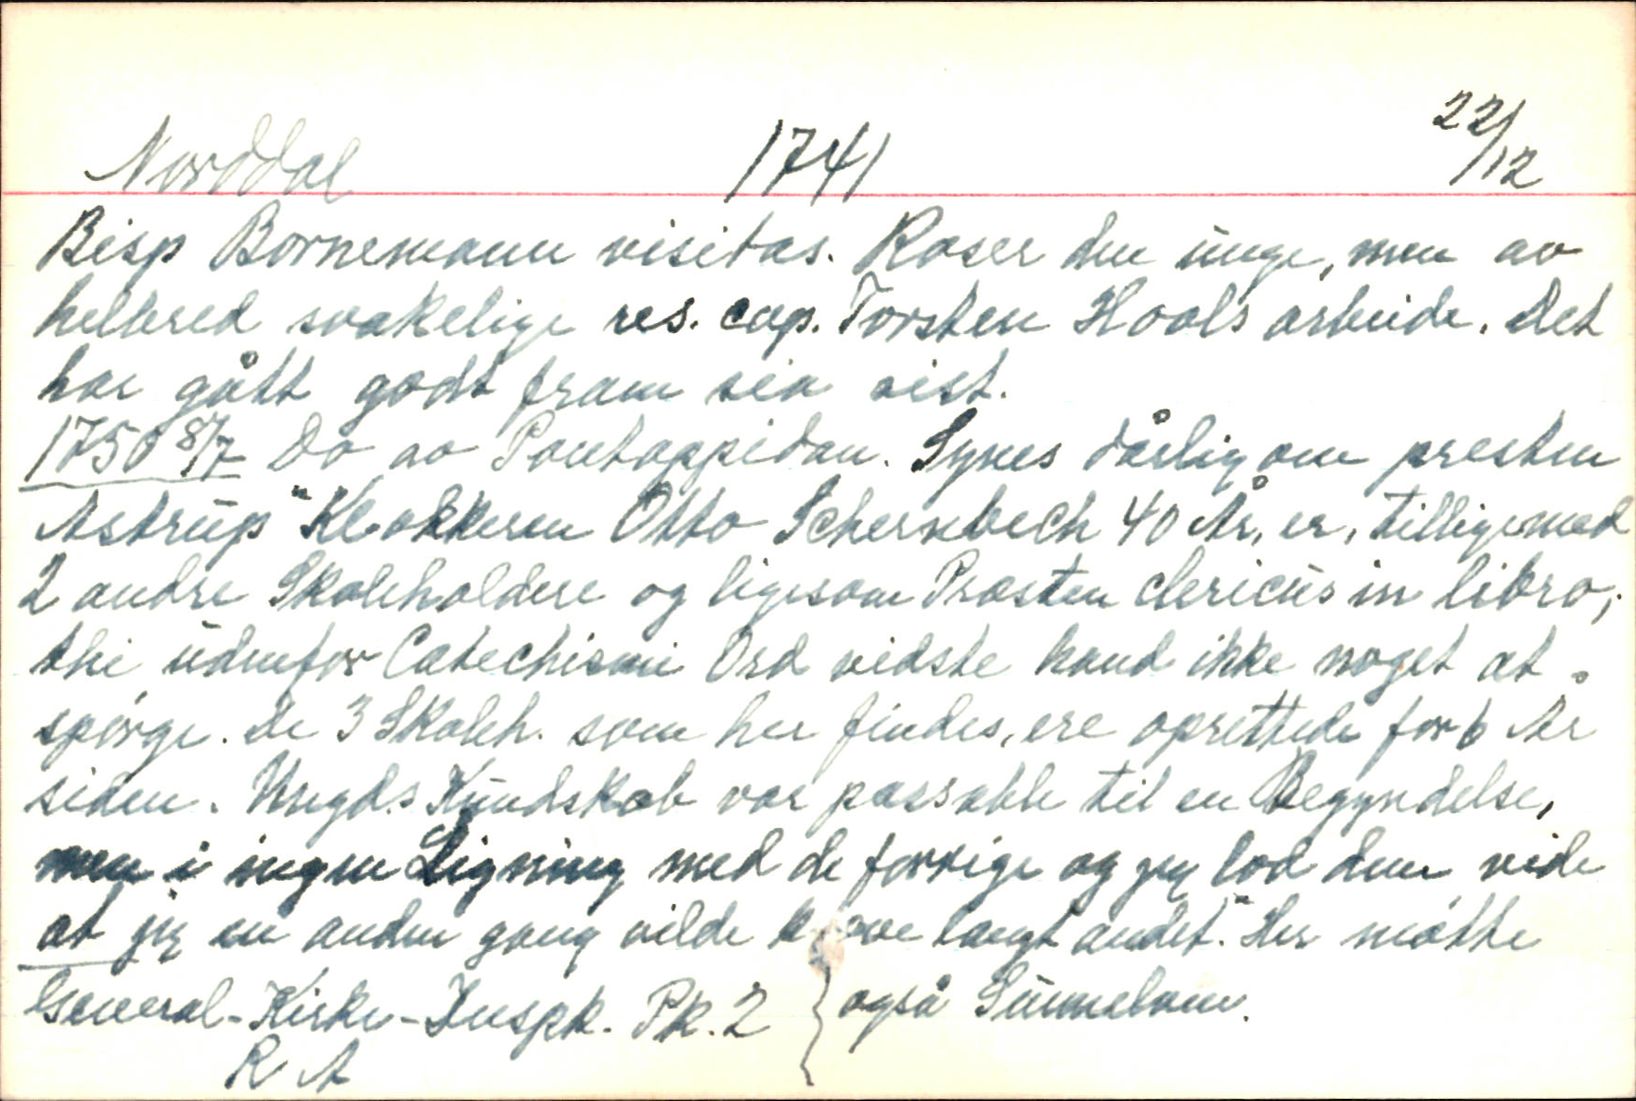 Norddal 1741 22/12
Bisp Bornemann visitas. Roser den unge, men av
helbred svakelige res. cap. Torsten Hools arbeide. Det
har gått godt fram sia sist.
1750 8/7 Do av Pontoppidan. Synes dårlig om presten
Astrup "Klokkeren Otto Schersebech 40 År, er, tilligemed
2 andre Skoleholdere og ligesom Præsten clericus in libro;
thi udenfor Catechismi Ord vidste hand ikke noget at
spørge. De 3 Skoleh. som her findes, ere oprettede for 6 År
siden. Ungds. Kundskab var passable til en Begyndelse,
men i ingen Ligning med de forrige og jeg lod dem vide
at jeg en anden gang vilde kræve langt andet." Her møtte
også Sunnelven.
General-Kirke-Inspk. Pk. 2
R A